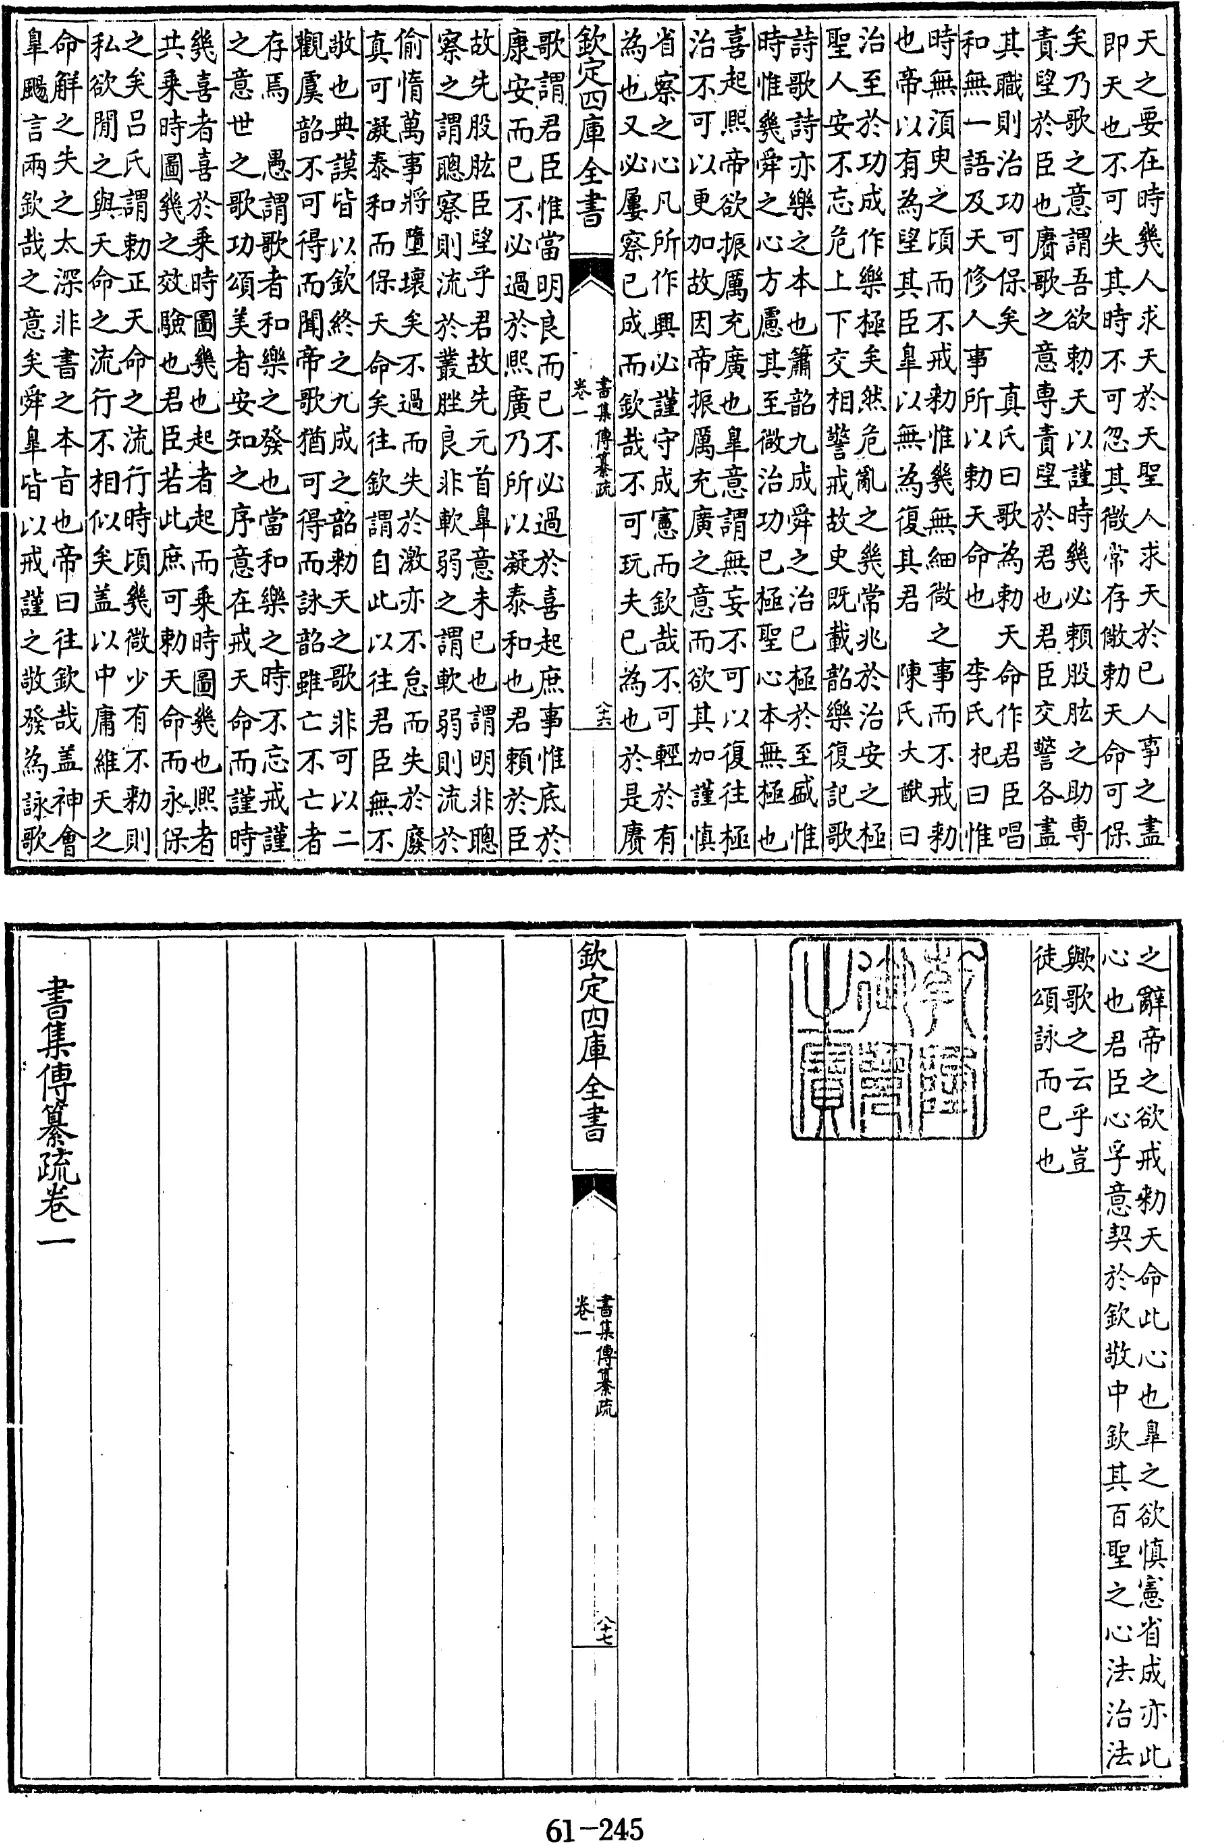 天之要在時幾人求天於天聖人求天於已人事之盡
即天也不可失其時不可忽其微常存儆勅天命可保
矣乃歌之意謂吾欲勅天以謹時幾必頼股肱之助専
責望於臣也賡歌之意専責望於君也君臣交警各盡
其職則治功可保矣　真氏曰歌為勅天命作君臣唱
和無一語及天修人事所以勅天命也　李氏杞曰惟
時無湏臾之頃而不戒勅惟幾無細微之事而不戒勅
也帝以有為望其臣臯以無為復其君　陳氏大猷曰
治至於功成作樂極矣然危亂之幾常兆於治安之極
聖人安不忘危上下交相警戒故史既載韶樂復記歌
詩歌詩亦樂之本也簫韶九成舜之治已極於至盛惟
時惟幾舜之心方慮其至微治功已極聖心本無極也
喜起熙帝欲振厲充廣也臯意謂無妄不可以復往極
治不可以更加故因帝振厲充廣之意而欲其加謹慎
省察之心凡所作興必謹守成憲而欽哉不可輕於有
為也又必屢察已成而欽哉不可玩夫已為也於是賡
欽定四庫全書
書集傳纂疏
卷一
八十六
歌謂君臣惟當明良而已不必過於喜起庶事惟底於
康安而已不必過於熙廣乃所以凝泰和也君頼於臣
故先股肱臣望乎君故先元首臯意未已也謂明非聰
察之謂聰察則流於叢脞良非軟弱之謂軟弱則流於
偷惰萬事將墮壊矣不過而失於激亦不怠而失於廢
真可凝泰和而保天命矣往欽謂自此以往君臣無不
敬也典謨皆以欽終之九成之韶勅天之歌非可以二
觀虞韶不可得而聞帝歌猶可得而詠韶雖亡不亡者
存焉　愚謂歌者和樂之發也當和樂之時不忘戒謹
之意世之歌功頌美者安知之序意在戒天命而謹時
幾喜者喜於乗時圖幾也起者起而乗時圖幾也熙者
共乗時圖幾之效驗也君臣若此庶可勅天命而永保
之矣吕氏謂勅正天命之流行時頃幾微少有不勅則
私欲閒之與天命之流行不相似矣盖以中庸維天之
命解之失之太深非書之本㫖也帝曰往欽哉盖神會
臯颺言兩欽哉之意矣舜臯皆以戒謹之敬發為詠歌
之辭帝之欲戒勅天命此心也臯之欲慎憲省成亦此
心也君臣心孚意契於欽敬中欽其百聖之心法治法
歟歌之云乎豈
徒頌詠而已也
乾隆御覽之寶
欽定四庫全書
書集傳纂疏
卷一
八十七
書集傳纂疏卷一
61-245